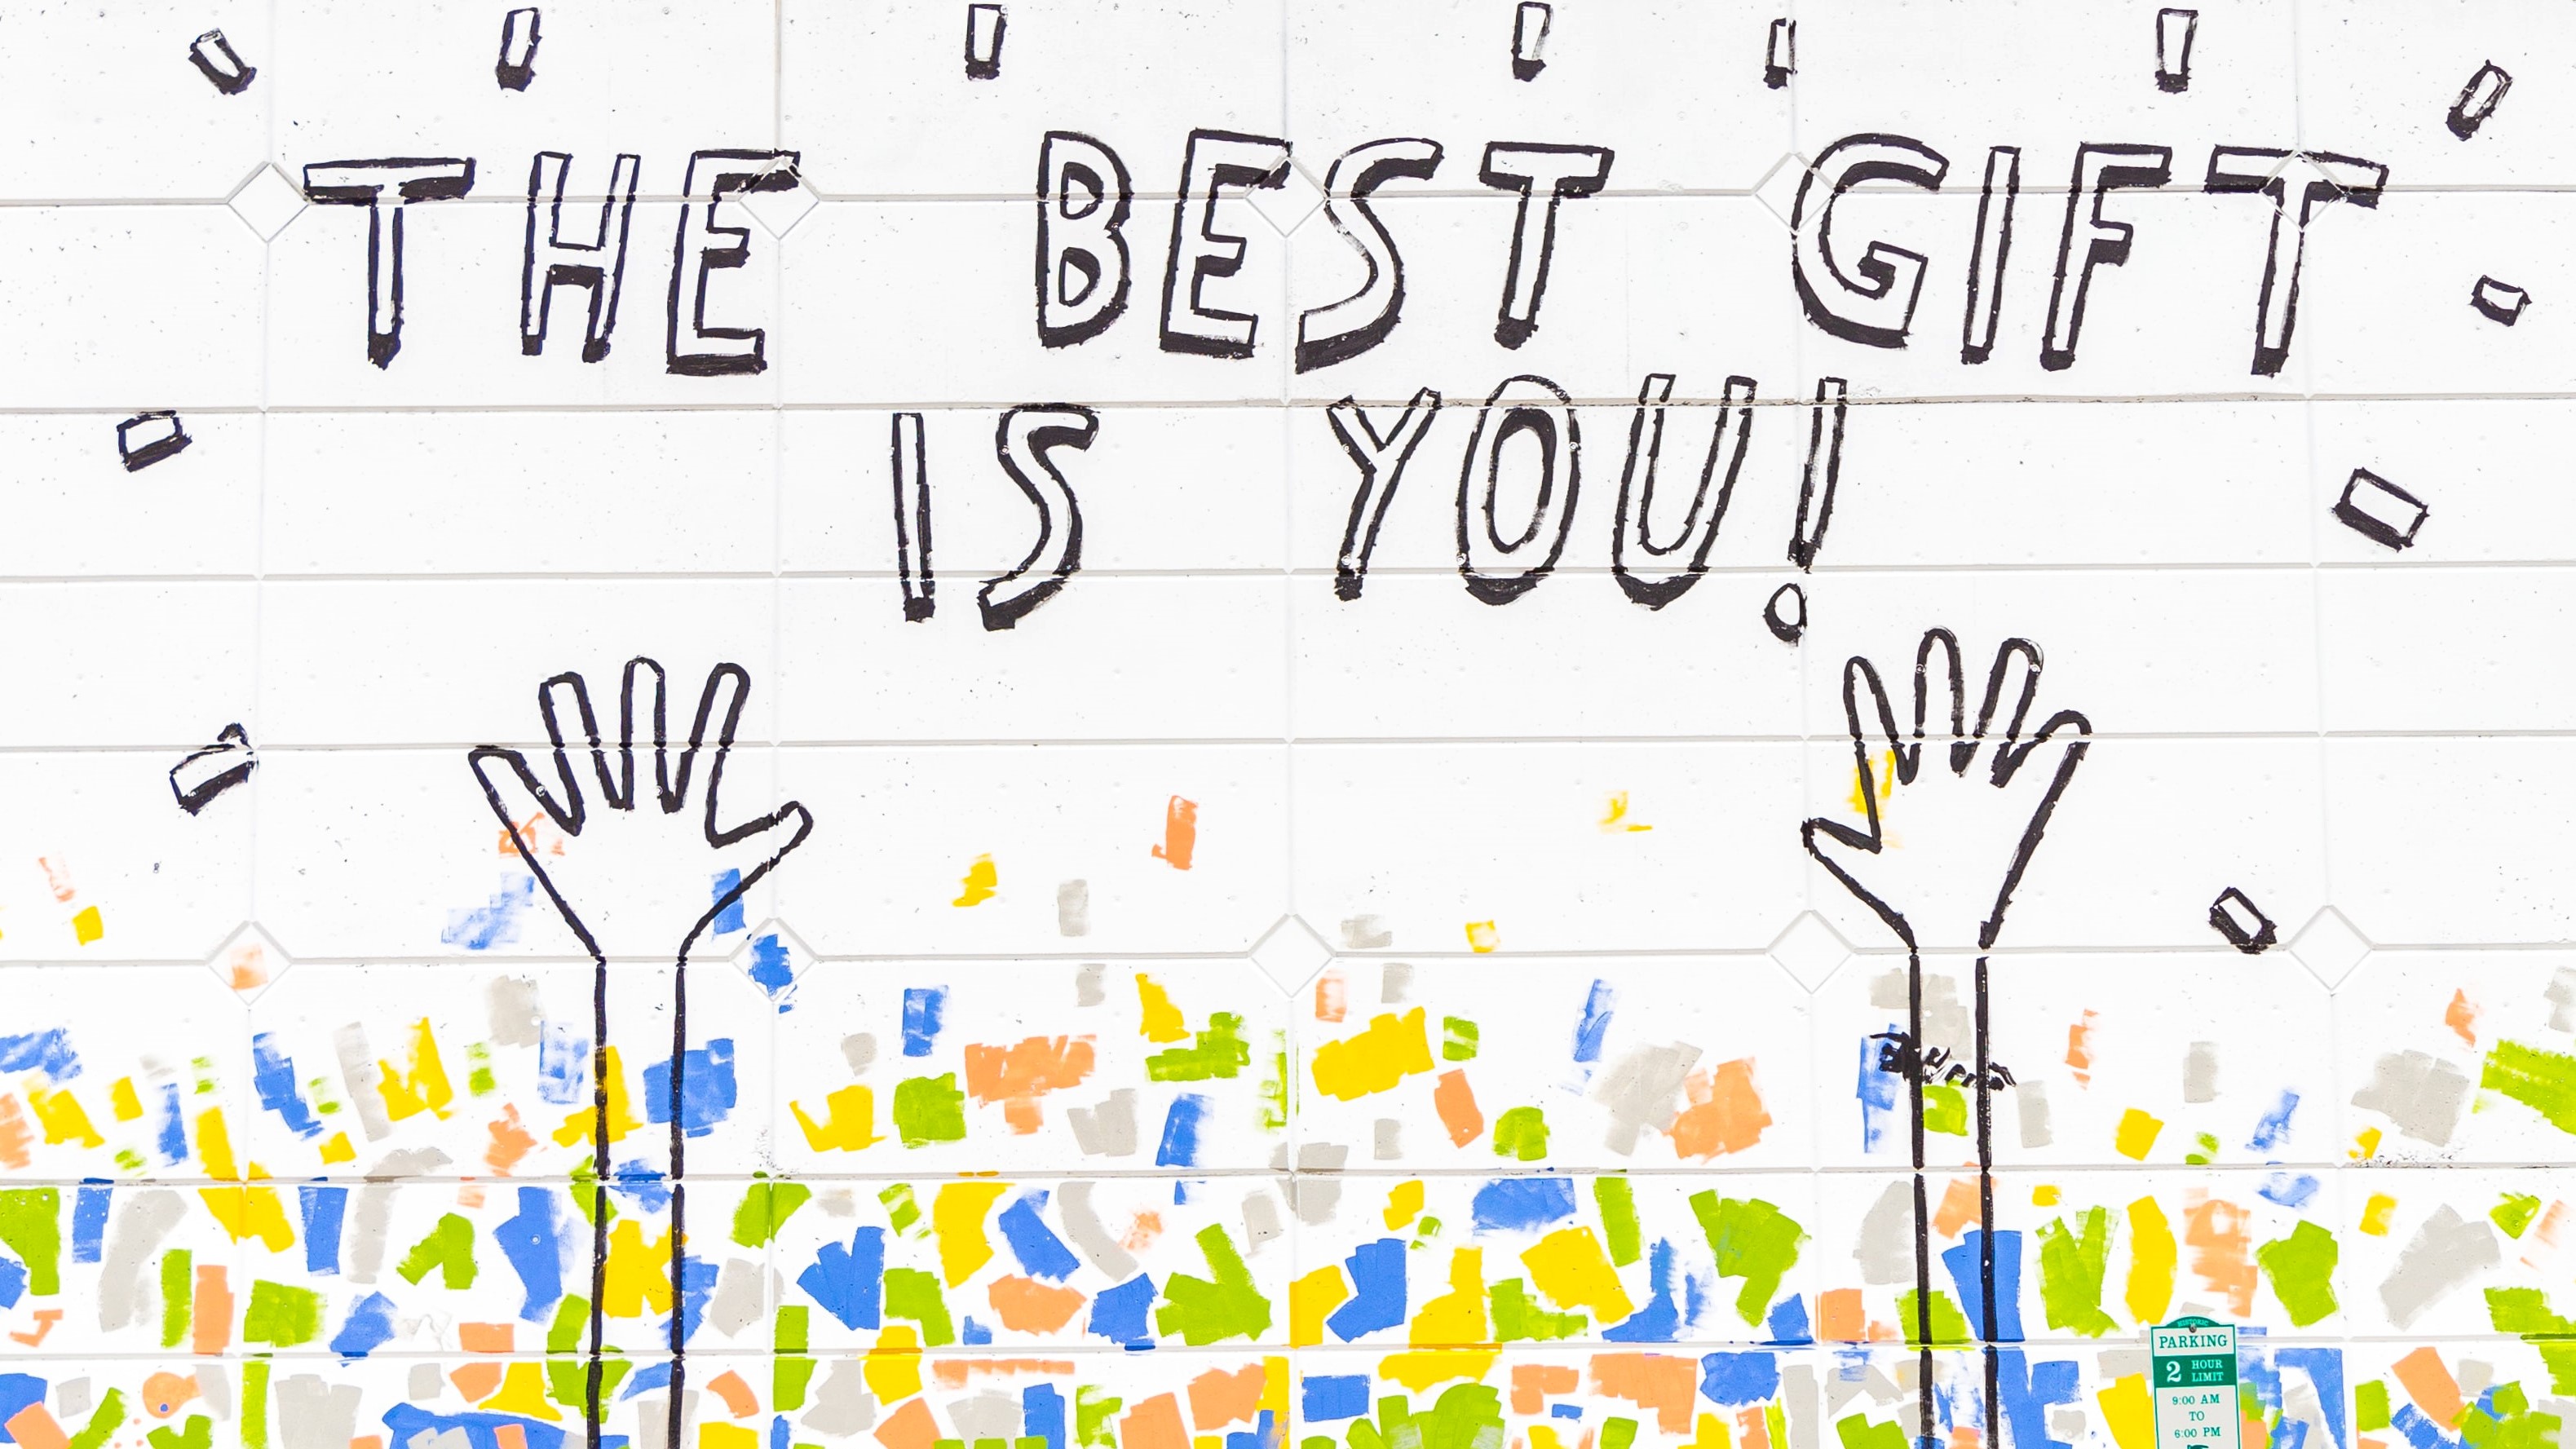 THE BEST GIFT
IS YOU!
HISTORIC
PARKING
2 HOUR
LIMIT
9:00 AM
TO
6:00 PM